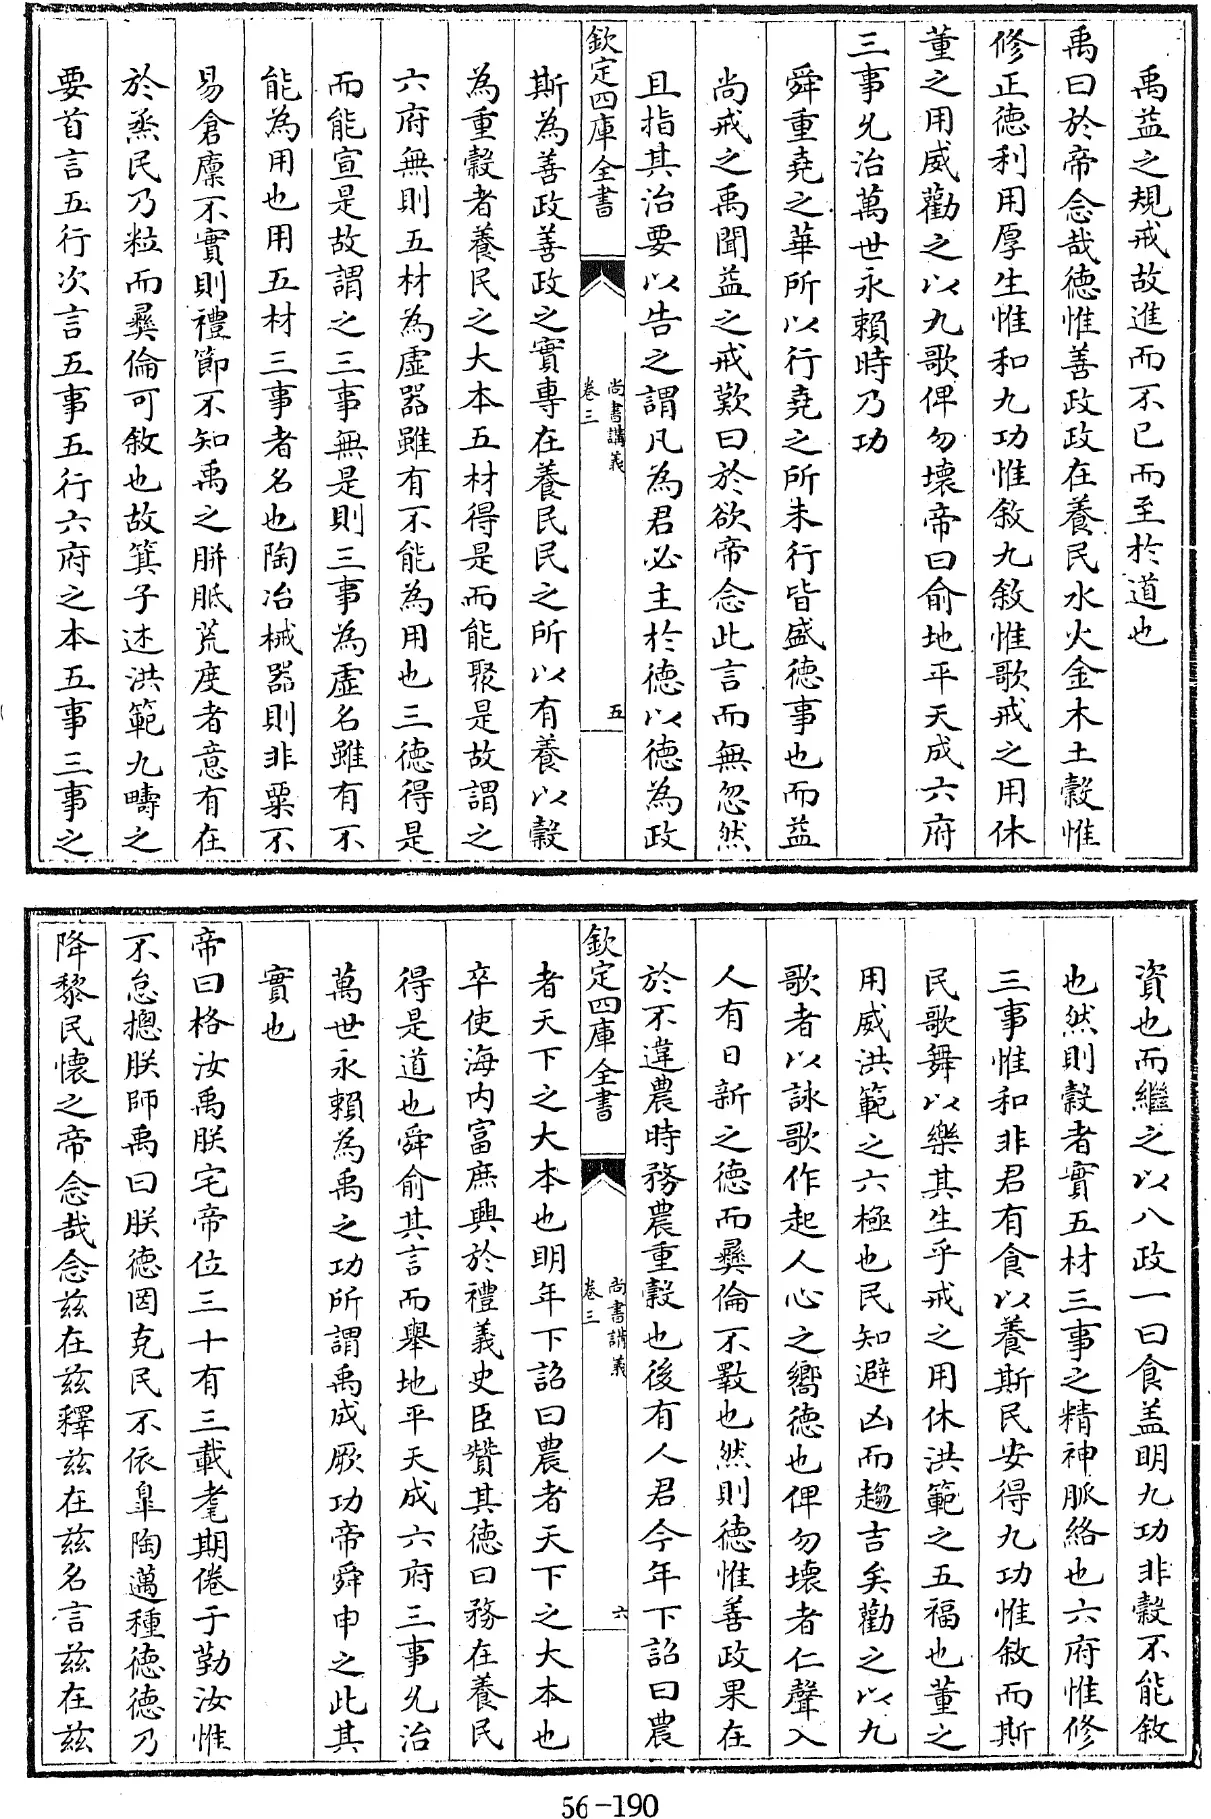 禹益之規戒故進而不已而至於道也
禹曰於帝念哉德惟善政政在養民水火金木土穀惟
修正德利用厚生惟和九功惟敘九敘惟歌戒之用休
董之用威勸之以九歌俾勿壞帝曰俞地平天成六府
三事允治萬世永賴時乃功
舜重堯之華所以行堯之所未行皆盛德事也而益
尚戒之禹聞益之戒歎曰於欲帝念此言而無忽然
且指其治要以告之謂凡為君必主於德以德為政
欽定四庫全書
尚書講義
卷三
五
斯為善政善政之實專在養民民之所以有養以穀
為重穀者養民之大本五材得是而能聚是故謂之
六府無則五材為虛器雖有不能為用也三德得是
而能宣是故謂之三事無是則三事為虛名雖有不
能為用也用五材三事者名也陶冶械器則非粟不
易倉廩不實則禮節不知禹之胼胝荒度者意有在
於烝民乃粒而彞倫可敘也故箕子述洪範九疇之
要首言五行次言五事五行六府之本五事三事之
資也而繼之以八政一曰食盖明九功非穀不能敘
也然則穀者實五材三事之精神脈絡也六府惟修
三事惟和非君有食以養斯民安得九功惟敘而斯
民歌舞以樂其生乎戒之用休洪範之五福也董之
用威洪範之六極也民知避凶而趨吉矣勸之以九
歌者以詠歌作起人心之嚮德也俾勿壞者仁聲入
人有日新之德而彞倫不斁也然則德惟善政果在
於不違農時務農重穀也後有人君今年下詔曰農
欽定四庫全書
尚書講義
卷三
六
者天下之大本也明年下詔曰農者天下之大本也
卒使海內富庶興於禮義史臣贊其德曰務在養民
得是道也舜俞其言而舉地平天成六府三事允治
萬世永賴為禹之功所謂禹成厥功帝舜申之此其
實也
帝曰格汝禹朕宅帝位三十有三載耄期倦于勤汝惟
不怠摠朕師禹曰朕德罔克民不依臯陶邁種德德乃
降黎民懷之帝念哉念茲在茲釋茲在茲名言茲在茲
56-190